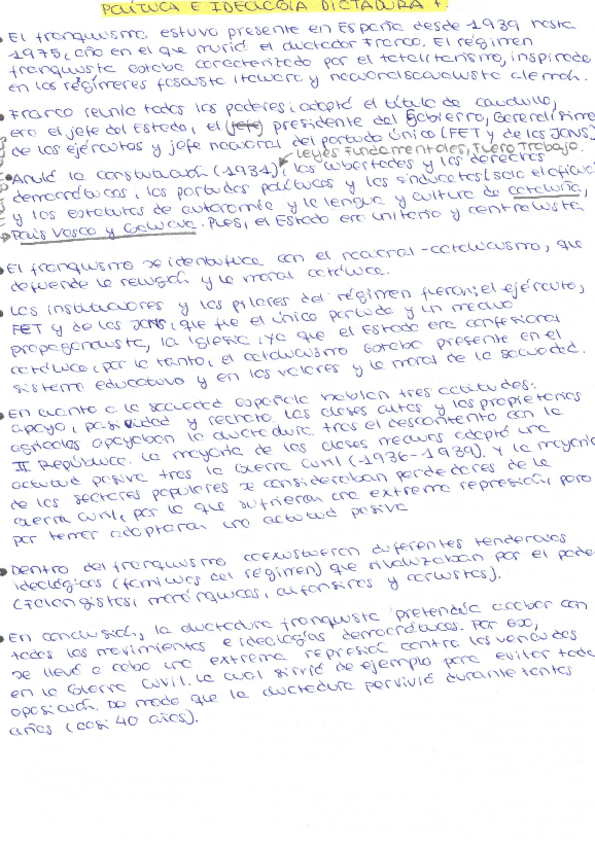 POLÍTICA E IDEOLOGÍA DICTADURA F.
El franquismo estuvo presente en España desde 1939 hasta
1975, año en el que murió el dictador Franco. El régimen
franquista estaba caracterizado por el totalitarismo, inspirado
en los regímenes fascista italiano y nacionalsocialista alemán.
Franco reunía todos los poderes; adoptó el título de caudillo,
era el jefe del Estado, el (jefe) presidente del Gobierno, Generalísimo
de los ejércitos y jefe nacional del partido único (FET y de las JONS)
Leyes Fundamentales, Fuero Trabajo.
Anuló la constitución (1931), las libertades y los derechos
democráticos, los partidos políticos y los sindicatos (solo el oficial)
y los estatutos de autonomía y la lengua y cultura de Cataluña,
País Vasco y Galicia. Pues, el Estado era unitario y centralista
El franquismo se identifica con el nacional-catolicismo, que
defiende la religión y la moral católica.
Las instituciones y los pilares del régimen fueron; el ejército,
FET y de las JONS, que fue el único partido y un medio
propagandista, la iglesia, ya que el Estado era confesional
católico, por lo tanto, el catolicismo estaba presente en el
sistema educativo y en los valores y la moral de la sociedad.
En cuanto a la sociedad española habían tres actitudes:
apoyo, pasividad y rechazo. Las clases altas y los propietarios
agrícolas apoyaban la dictadura tras el descontento con la
II República. La mayoría de las clases medias adoptó una
actitud pasiva tras la Guerra Civil (-1936-1939). Y la mayoría
de los sectores populares se consideraban perdedores de la
Guerra Civil, por lo que sufrieron una extrema represión, pero
por temor adoptaron una actitud pasiva
Dentro del franquismo coexistieron diferentes tendencias
ideológicas (familias del régimen) que rivalizaban por el poder
(falangistas, monárquicos, alfonsinos y carlistas).
En conclusión, la dictadura franquista pretendía acabar con
todos los movimientos e ideologías democráticas. Por eso,
se llevó a cabo una extrema represión contra los vencidos
en la Guerra Civil. La cual sirvió de ejemplo para evitar toda
oposición. De modo que la dictadura pervivió durante tantos
años (casi 40 años).